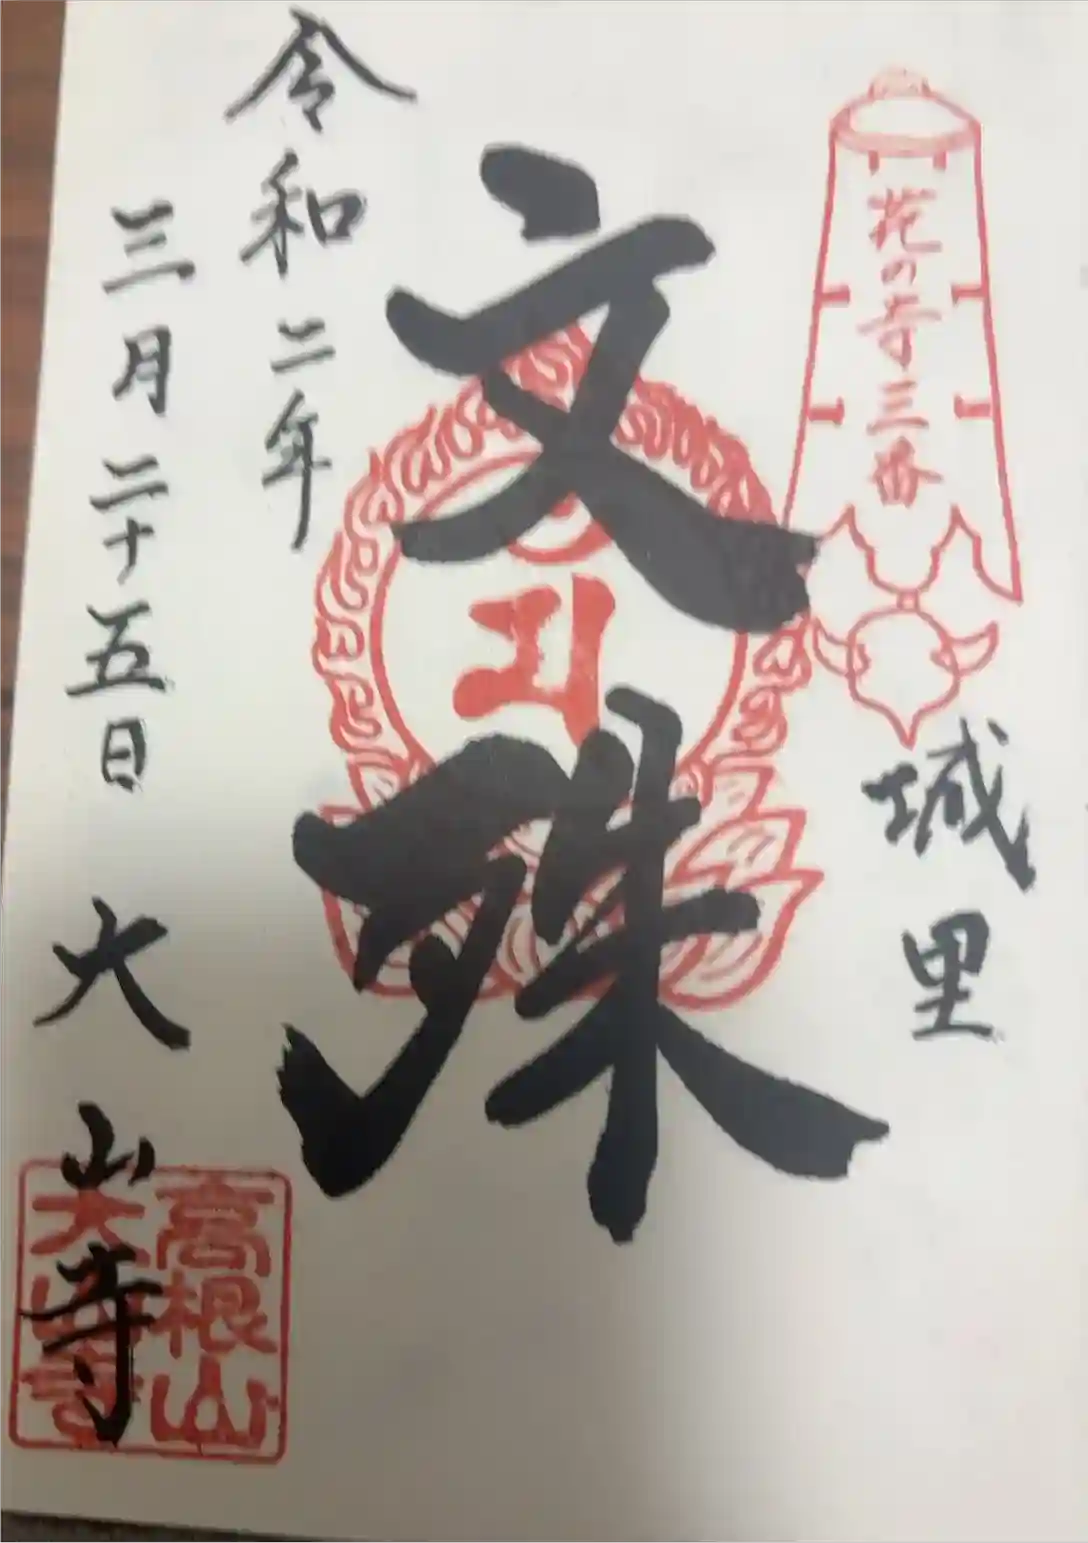 花の寺三番
城里
文殊
令和二年
三月二十五日 大山寺
高根山
大山寺